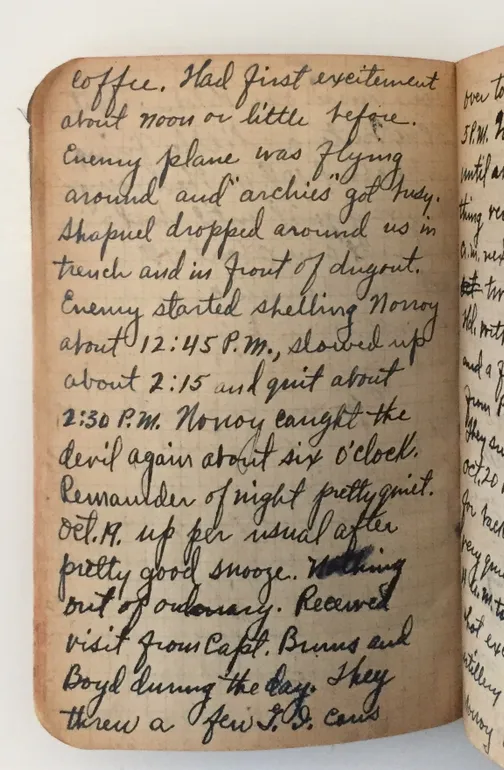 coffee. Had first excitement
about noon or little before.
Enemy plane was flying
around and "archies" got busy.
Shapnel dropped around us in
trench and in front of dugout.
Enemy started shelling Norroy
about 12:45 P.M., slowed up
about 2:15 and quit about
2:30 P.M. Norroy caught the
devil again about six o'clock.
Remainder of night pretty quiet.
Oct. 19. up per usual after
pretty good snooze. Nothing
out of ordinary. Received
visit from Capt. Burns and
Boyd during the day. They
threw a few G. I. cans
over to
5 P.M.
until
thing
a.m.
and a
from
They
Oct. 20
for
very